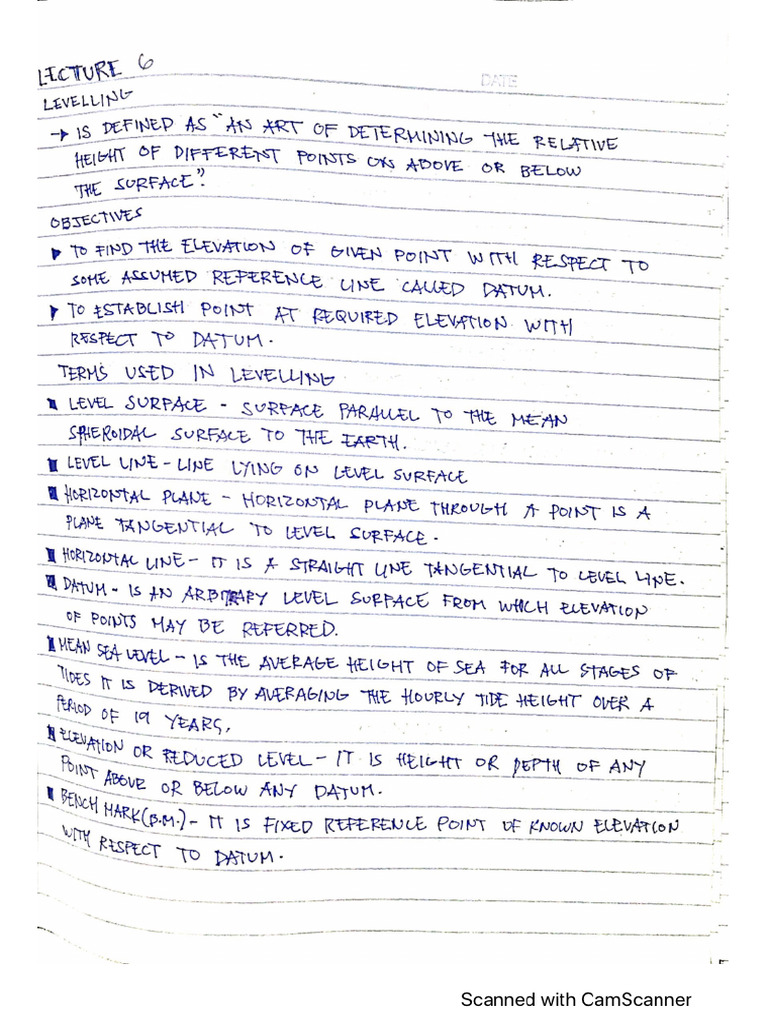 LECTURE 6
DATE
LEVELLING
→ IS DEFINED AS "AN ART OF DETERMINING THE RELATIVE
HEIGHT OF DIFFERENT POINTS ON ABOVE OR BELOW
THE SURFACE".
OBJECTIVES
▶ TO FIND THE ELEVATION OF GIVEN POINT WITH RESPECT TO
SOME ASSUMED REFERENCE LINE CALLED DATUM.
▶ TO ESTABLISH POINT AT REQUIRED ELEVATION WITH
RESPECT TO DATUM.
TERMS USED IN LEVELLING
▮ LEVEL SURFACE - SURFACE PARALLEL TO THE MEAN
SPHEROIDAL SURFACE TO THE EARTH.
▮ LEVEL LINE - LINE LYING ON LEVEL SURFACE
▮ HORIZONTAL PLANE - HORIZONTAL PLANE THROUGH A POINT IS A
PLANE TANGENTIAL TO LEVEL SURFACE.
▮ HORIZONTAL LINE - IT IS A STRAIGHT LINE TANGENTIAL TO LEVEL LINE.
▮ DATUM - IS AN ARBITRARY LEVEL SURFACE FROM WHICH ELEVATION
OF POINTS MAY BE REFERRED.
▮ MEAN SEA LEVEL - IS THE AVERAGE HEIGHT OF SEA FOR ALL STAGES OF
TIDES IT IS DERIVED BY AVERAGING THE HOURLY TIDE HEIGHT OVER A
PERIOD OF 19 YEARS,
▮ ELEVATION OR REDUCED LEVEL - IT IS HEIGHT OR DEPTH OF ANY
POINT ABOVE OR BELOW ANY DATUM.
▮ BENCH MARK (B.M.) - IT IS FIXED REFERENCE POINT OF KNOWN ELEVATION
WITH RESPECT TO DATUM.
Scanned with CamScanner